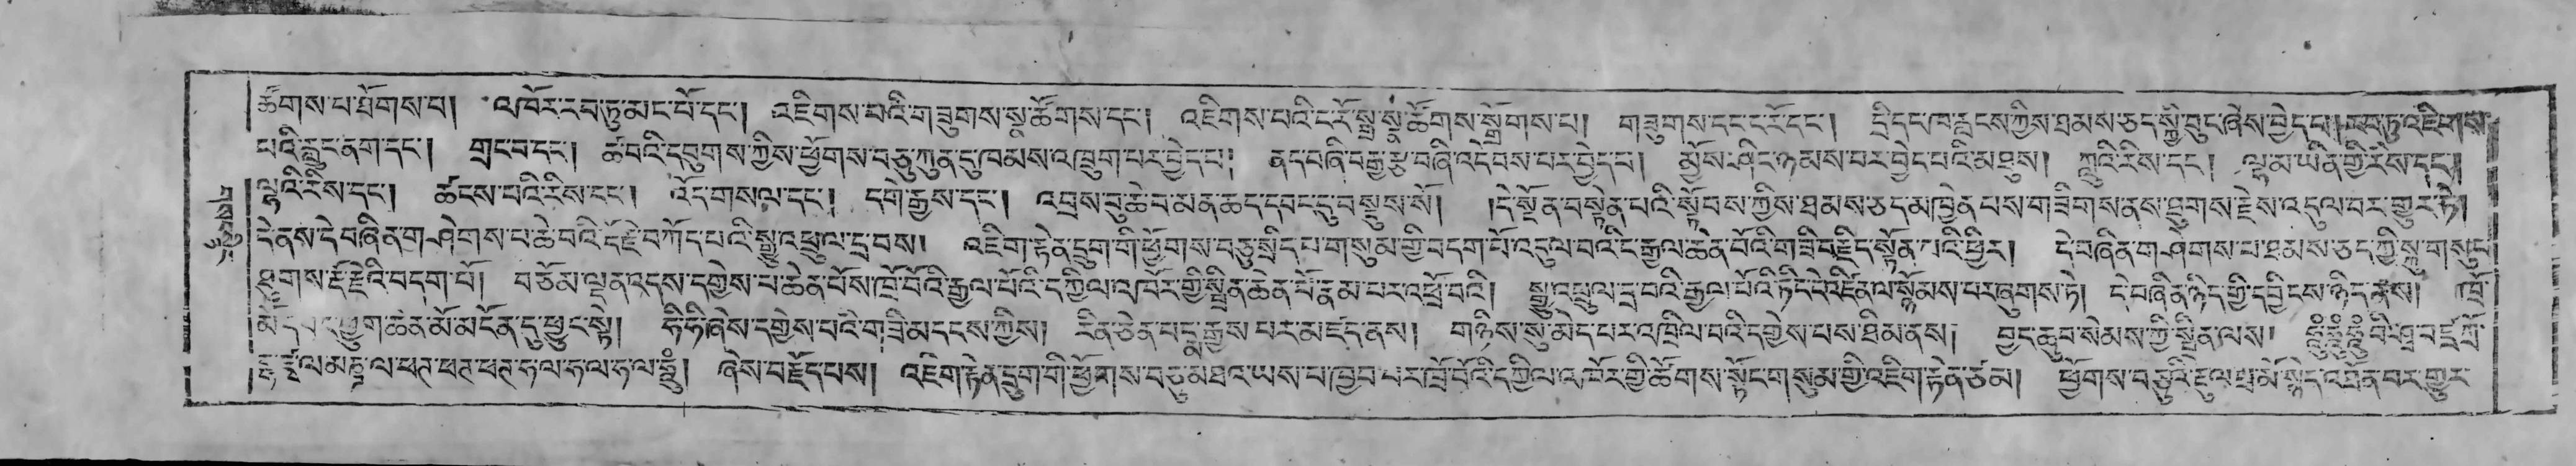 ཚོགས་པ་ཐོགས་པ། འཁོར་རབ་ཏུ་མང་པོ་དང་། འཇིགས་པའི་གཟུགས་སྣ་ཚོགས་དང་། འཇིགས་པའི་ང་རོ་སྒྲ་སྣ་ཚོགས་སྒྲོགས་པ། གཟུགས་དང་ང་རོ་དང་། དྲི་དང་ཁ་རླངས་ཀྱིས་ཐམས་ཅད་སྐྱི་བུང་ཞེས་བྱེད་པ། རབ་ཏུ་འཇིགས་
པའི་རླུང་ནག་དང་། གྲང་བ་དང་། ཚ་བའི་དབུགས་ཀྱིས་ཕྱོགས་བཅུ་ཀུན་ཏུ་ཁམས་འཁྲུག་པར་བྱེད་པ། ནད་བཞི་བརྒྱ་རྩ་བཞི་འདེབས་པར་བྱེད་པ། མྱོས་ཤིང་ཉམས་པར་བྱེད་པའི་མཐུས། ཀླུའི་རིས་དང་། ལྷ་མ་ཡིན་གྱི་རིས་དང་།
ལྷའི་རིས་དང་། ཚངས་པའི་རིས་དང་། འོད་གསལ་དང་། དགེ་རྒྱས་དང་། འབྲས་བུ་ཆེ་བ་མན་ཆད་དབང་དུ་བསྡུས་སོ། །དེ་སྔོན་བསྟན་པའི་སྟོབས་ཀྱིས་ཐམས་ཅད་མཁྱེན་པས་གཟིགས་ནས་ཐུགས་རྗེས་འདུལ་བར་གྱུར་ཏེ།
དེ་ནས་དེ་བཞིན་གཤེགས་པ་ཆེ་བའི་རྡོ་རྗེ་བཀོད་པའི་སྒྱུ་འཕྲུལ་དྲ་བས། འཇིག་རྟེན་དྲུག་གི་ཕྱོགས་བཅུ་སྲིད་པ་གསུམ་གྱི་བདག་པོ་འདུལ་བའི་ང་རྒྱལ་ཆེན་པོའི་གཟི་བརྗིད་སྟོན་པའི་ཕྱིར། དེ་བཞིན་གཤེགས་པ་ཐམས་ཅད་ཀྱི་སྐུ་གསུང་
ཐུགས་རྡོ་རྗེའི་བདག་པོ། བཅོམ་ལྡན་འདས་དགྱེས་པ་ཆེན་པོས་ཁྲོ་བོའི་རྒྱལ་པོའི་དཀྱིལ་འཁོར་གྱི་སྤྲིན་ཆེན་པོ་རྣམ་པར་འཕྲོ་བའི། སྒྱུ་འཕྲུལ་དྲ་བའི་རྒྱལ་པོའི་ཏིང་ངེ་འཛིན་ལ་སྙོམས་པར་ཞུགས་ཏེ། དེ་བཞིན་ཉིད་ཀྱི་དབྱིངས་ཉིད་ནས། ཁྲོ་
མོ་དབང་ཕྱུག་ཆེན་མོ་མངོན་དུ་ཕྱུང་སྟེ། ཧི་ཧི་ཞེས་དགྱེས་པའི་གཟི་མདངས་ཀྱིས། རིན་ཅེན་པདྨ་རྒྱས་པར་མཛད་ནས། གཉིས་སུ་མེད་པར་འཁྲིལ་བའི་དགྱེས་པས་ཐིམ་ནས། བྱང་ཆུབ་སེམས་ཀྱི་སྤྲིན་ལས། ཧཱུྃ་ཧཱུྃ་ཧཱུྃ་བི་ཤྭ་བཛྲ་ཀྲོ་
དྷ་ཛྭ་ལ་མཎྜ་ལ་ཕཊ་ཕཊ་ཕཊ་ཧ་ལ་ཧ་ལ་ཧ་ལ་ཧཱུྃ། ཞེས་བརྗོད་པས། འཇིག་རྟེན་དྲུག་གི་ཕྱོགས་བཅུ་མཐའ་ཡས་པ་ཁྱབ་པར་ཁྲོ་བོའི་དཀྱིལ་འཁོར་གྱི་ཚོགས་སྟོང་གསུམ་གྱི་འཇིག་རྟེན་ཙམ། ཕྱོགས་བཅུའི་རྡུལ་ཕྲ་མོ་སྙེད་འཐོན་པར་གྱུར་